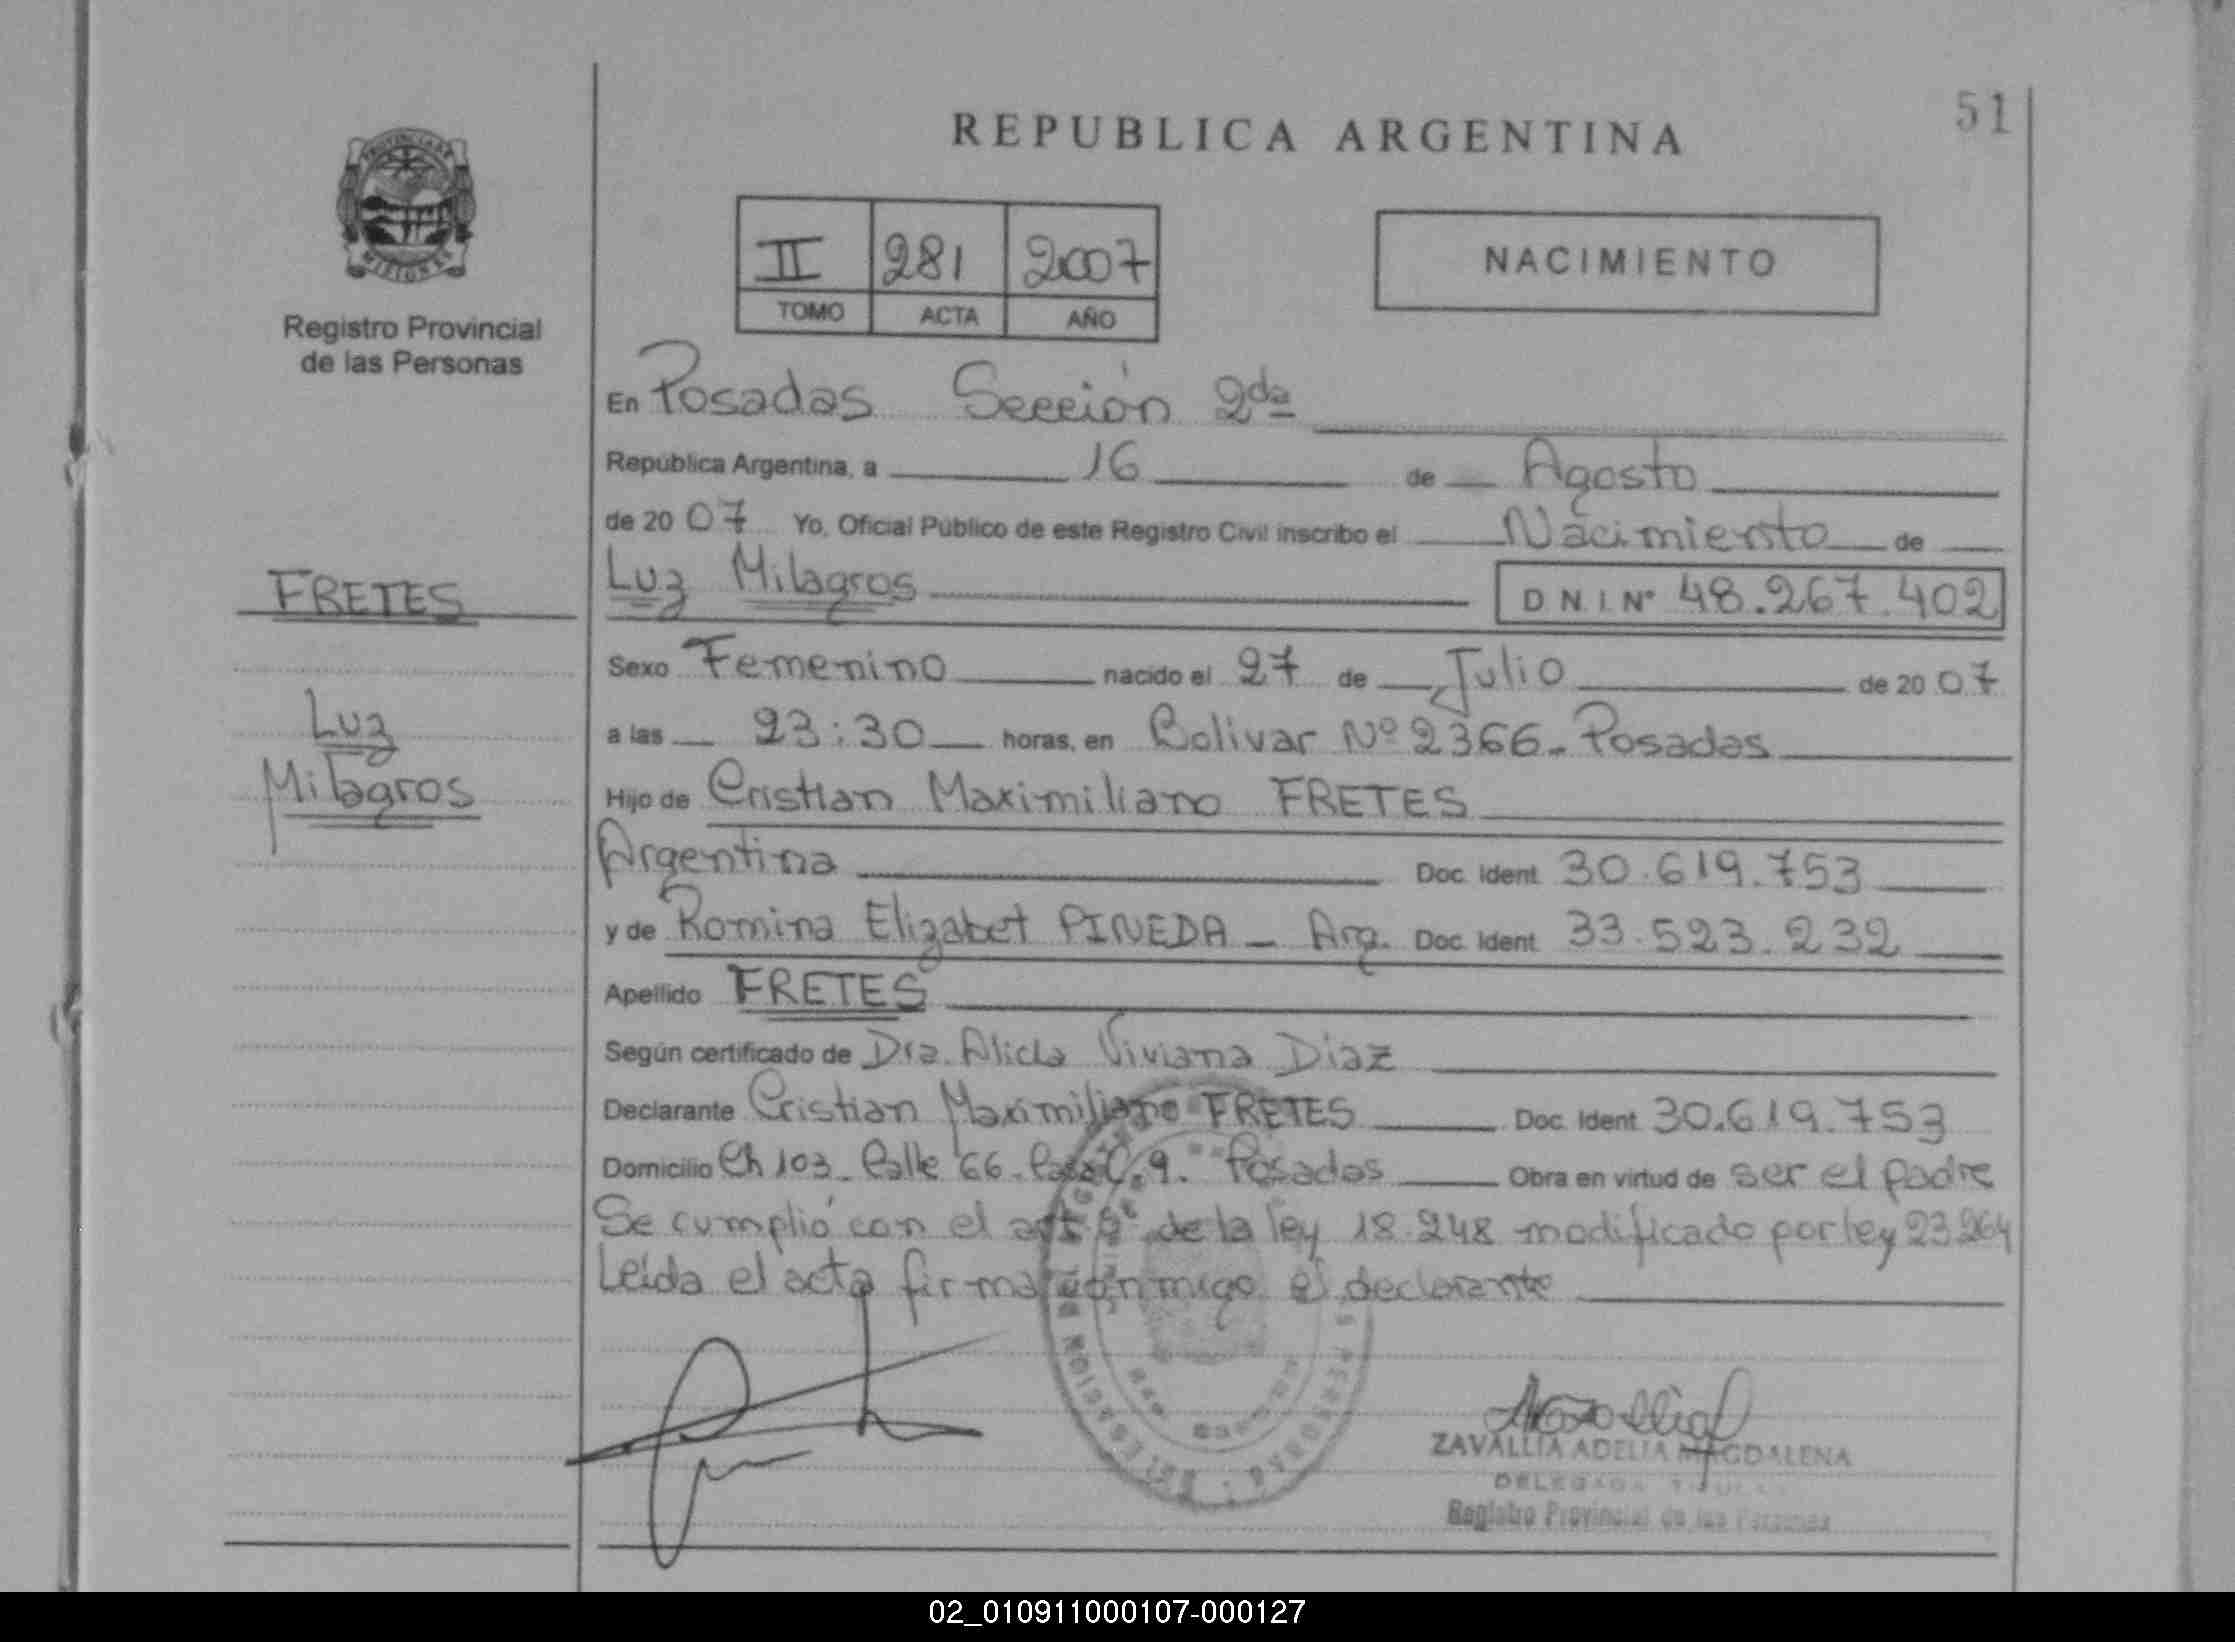 51
REPUBLICA ARGENTINA
PROVINCIA DE
MISIONES
Registro Provincial
de las Personas
II 281 2007
TOMO ACTA AÑO
NACIMIENTO
En Posadas Sección 2da
República Argentina, a 16 de Agosto
de 20 07 Yo, Oficial Público de este Registro Civil inscribo el Nacimiento de
FRETES
Luz Milagros D N.I. N° 48.267.402
Sexo Femenino nacido el 27 de Julio de 20 07
Luz
a las 23:30 horas, en Bolivar Nº 2366 - Posadas
Milagros
Hijo de Cristian Maximiliano FRETES
Argentina Doc. Ident. 30.619.753
y de Romina Elizabet PINEDA - Arg. Doc. Ident. 33.523.232
Apellido FRETES
Según certificado de Dra. Alicia Viviana Diaz
Declarante Cristian Maximiliano FRETES Doc. Ident. 30.619.753
Domicilio Ch 103 - Calle 66 - Casa 9. Posadas Obra en virtud de ser el padre
Se cumplió con el art. de la ley 18.248 modificado por ley 23264
Leída el acta firma conmigo el declarante
ZAVALLIA ADELIA MAGDALENA
DELEGADA TITULAR
Registro Provincial de las Personas
02_010911000107-000127